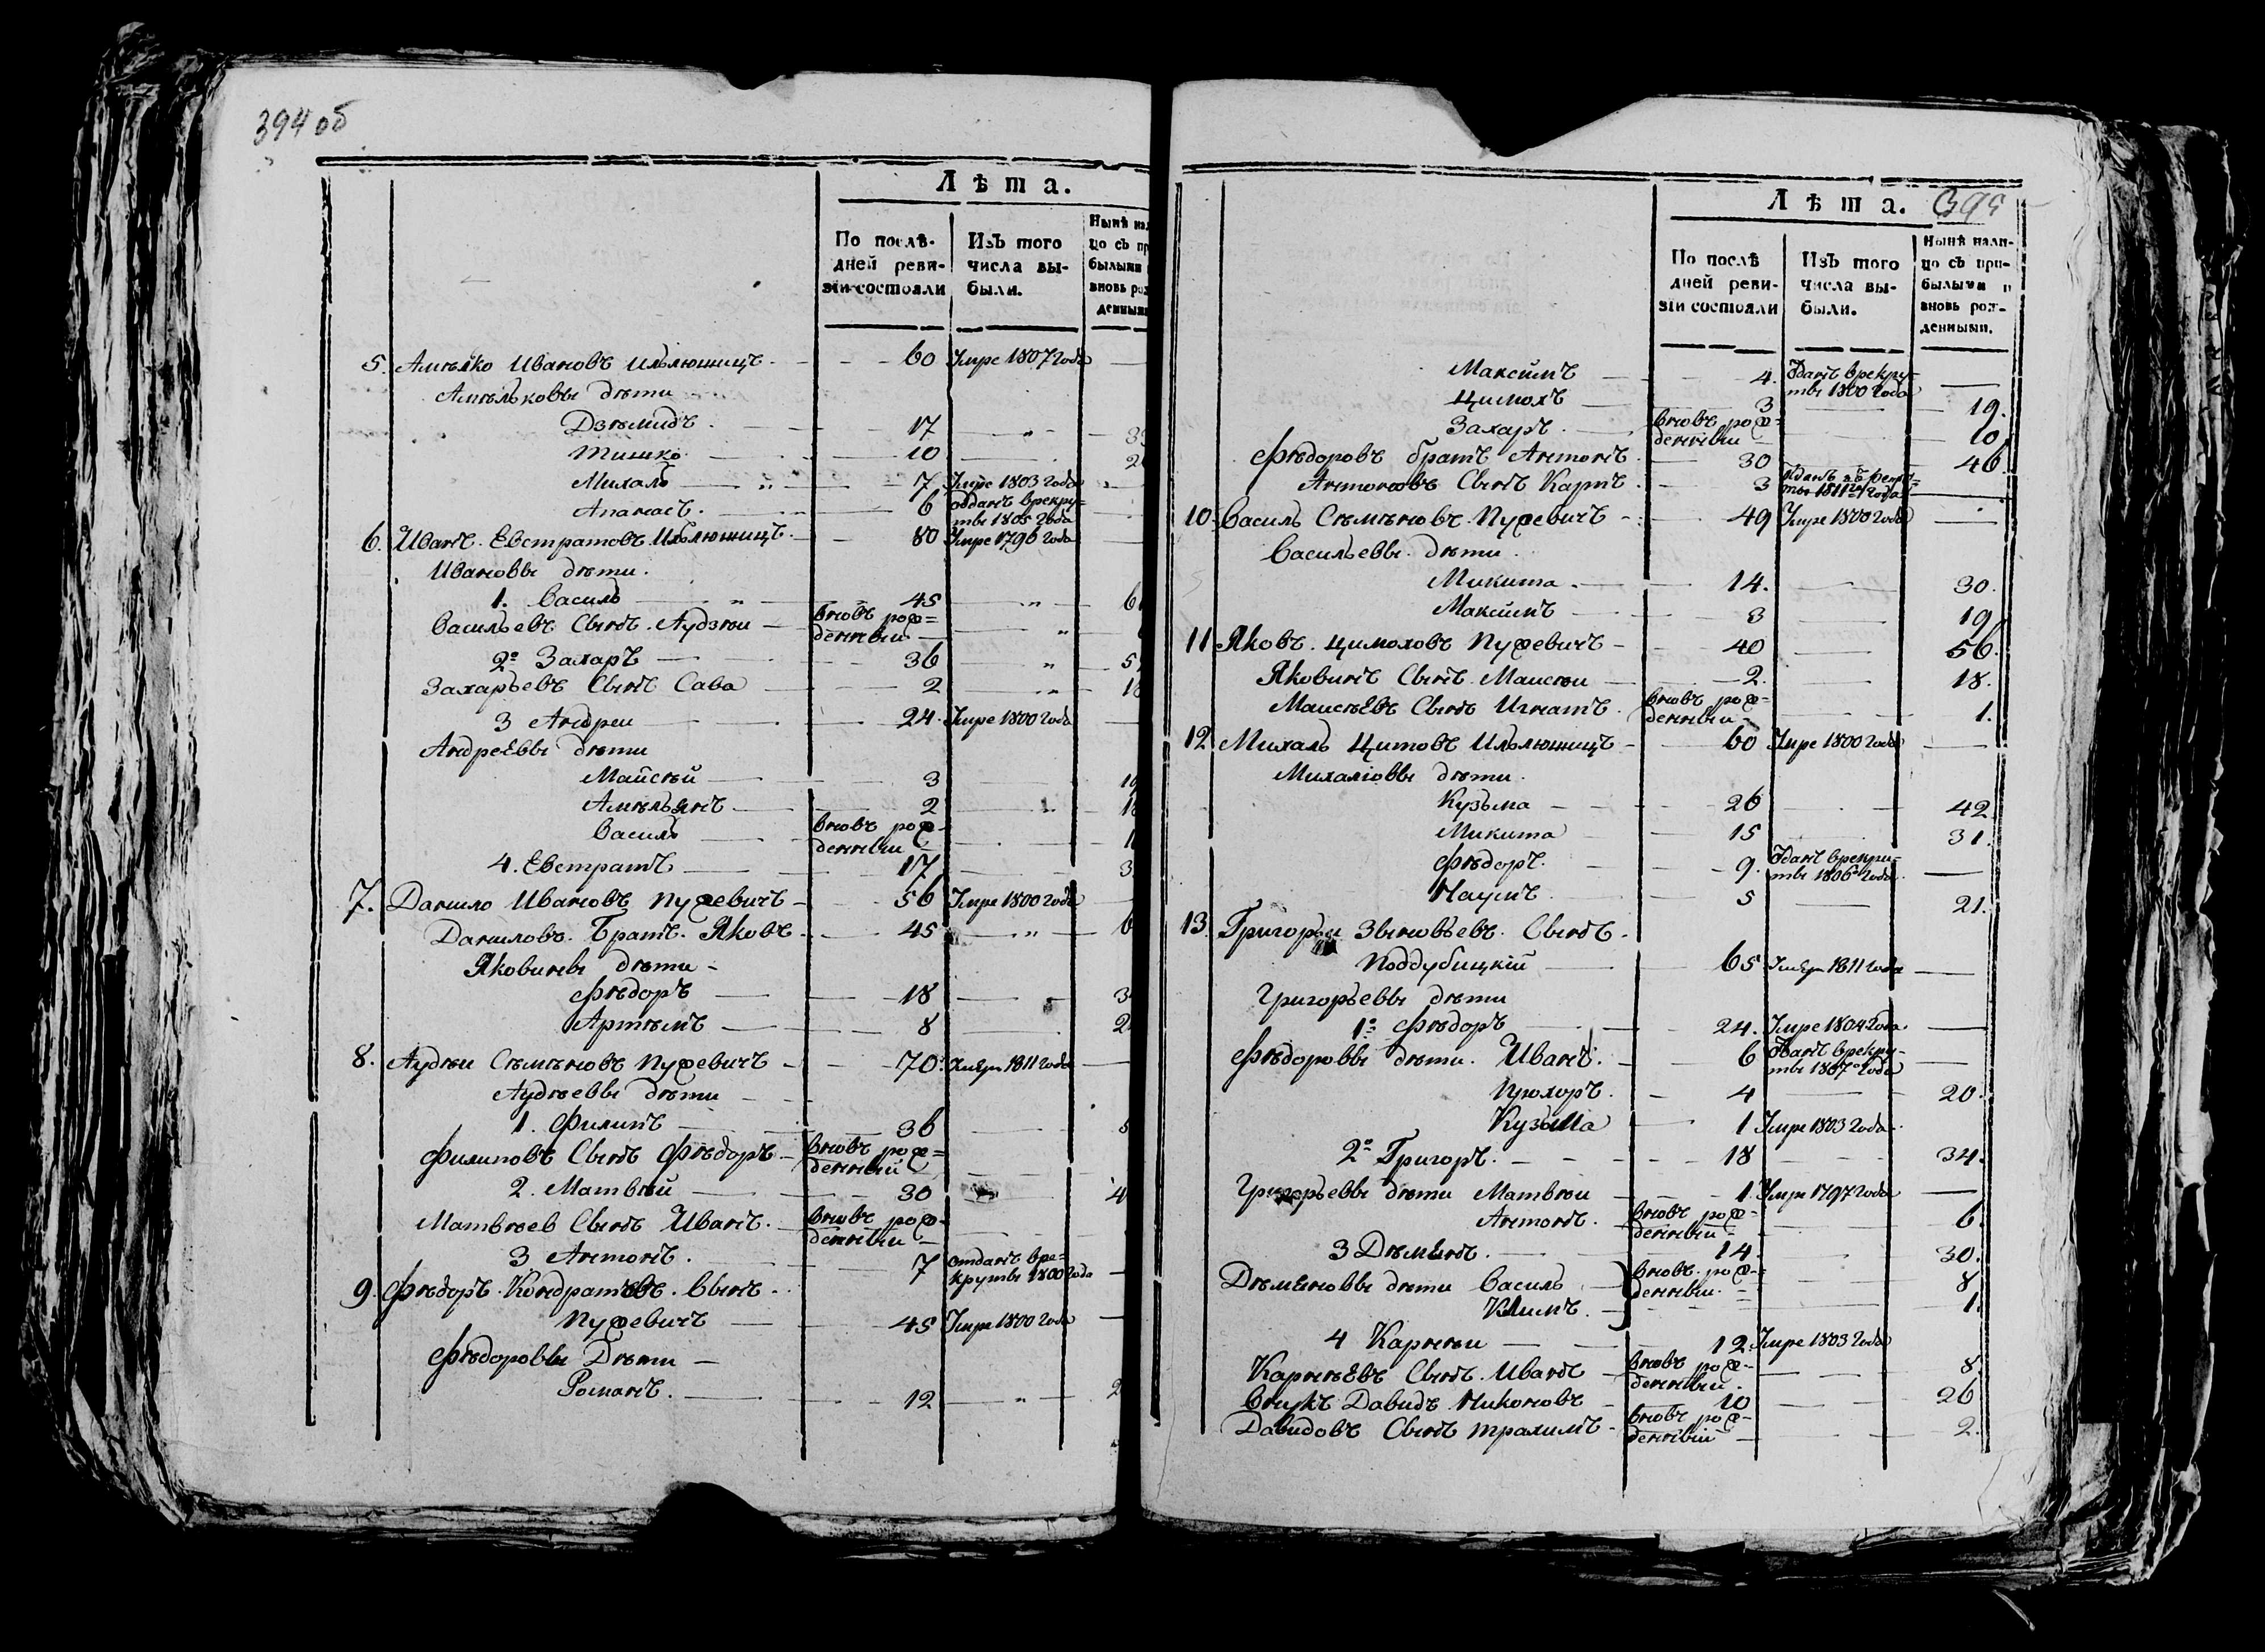 394 об
Лѣта.
По послѣ- Изъ того Нынѣ на
дней реви- числа вы- цо съ пр
зіи состояли были. былыми
вновь ро
денным
5. Амелько Ивановъ Ильлюшицъ 60 Умре 1807 года
Амельковы дѣти
Дзѣмидъ 17
Тишко 10
Михалъ 7 Умре 1803 года
Апанасъ 6 отданъ врекру-
ты 1805 года
6. Иванъ Евстратовъ Ильлюшицъ 80 Умре 1796 года
Ивановы дѣти
1. Василь 45
Васильевъ Сынъ Аудзѣи вновь рож=
денныи
2º Захаръ 36
Захарьевъ Сынъ Сава 2
3 Андреи 24 Умре 1800 года
АндреЕвы дѣти
Майсѣй 3
Амѣльянъ 2
Василь вновь рож-
денныи
4. Евстратъ 17
7. Данило Ивановъ Пужевичъ 56 Умре 1800 года
Даниловъ Братъ Яковъ 45
Яковины дѣти
Фѣдоръ 18
Артѣмъ 8
8. Аудѣи Сѣмѣновъ Пужевичъ 70 Умре 1811 года
Аудѣевы дѣти
1. Филипъ 36
Филиповъ Сынъ Фѣдоръ вновь рож=
денный
2. Матвѣй 30
Матвѣев Сынъ Иванъ вновь рож-
денныи
3 Антонъ 7 отданъ вре-
круты 1800 года
9. Фѣдоръ Кондратьевъ Сынъ
Пужевичъ 45 Умре 1800 года
Фѣдоровы Дѣти
Романъ 12
395
Лѣта.
По послѣ Изъ того Нынѣ нали-
дней реви- числа вы- цо съ при-
зіи состояли были. былыми и
вновь рож-
денными.
Максимъ 4. Отданъ врекру-
ты 1800 года
Цимохъ 3 19.
Захаръ вновь рож= 10
денныи
Фѣдоровъ братъ Антонъ 30 46
Антоновъ Сынъ Карпъ 3
10 Василь Сѣмѣновъ Пужевичъ 49 Умре 1800 года
Васильевы дѣти
Микита 14. 30.
Максимъ 3 19
11 Яковъ Цимоховъ Пужевичъ 40 56.
Яковинъ Сынъ Маисѣи 2. 18.
МаисѣЕвъ Сынъ Игнатъ вновь рож= 1.
денныи
12 Михалъ Цитовъ Ильлюшицъ 60 Умре 1800 года
Михаліовы дѣти
Кузьма 26 42
Микита 15 31.
Фѣдоръ 9. Отданъ врекру-
ты 1806 года
Наумъ 5 21.
13. Григорьи Зыновьевъ Сынъ
Поддубицкій 65 Умре 1811 года
Григорьевы дѣти
1º Фѣдоръ 24. Умре 1804 года
Фѣдоровы дѣти Иванъ 6 Отданъ врекру-
ты 1807 года
Прохоръ 4 20.
Кузьма 1 Умре 1803 года
2º Григоръ 18 34.
Григорьевы дѣти Матвѣи 1. Умре 1797 года
Антонъ вновь рож= 6.
денныи
3 ДѣмЕнъ 14 30.
ДѣмЕновы дѣти Василь вновь рож- 8
денныи
Климъ 1.
4 Карнѣи 12. Умре 1803 года
КарнѣЕвъ Сынъ Иванъ вновь рож- 8.
денныи
Внукъ Давидъ Никоновъ 10 26
Давидовъ Сынъ Трахимъ вновь рож- 2.
денныи